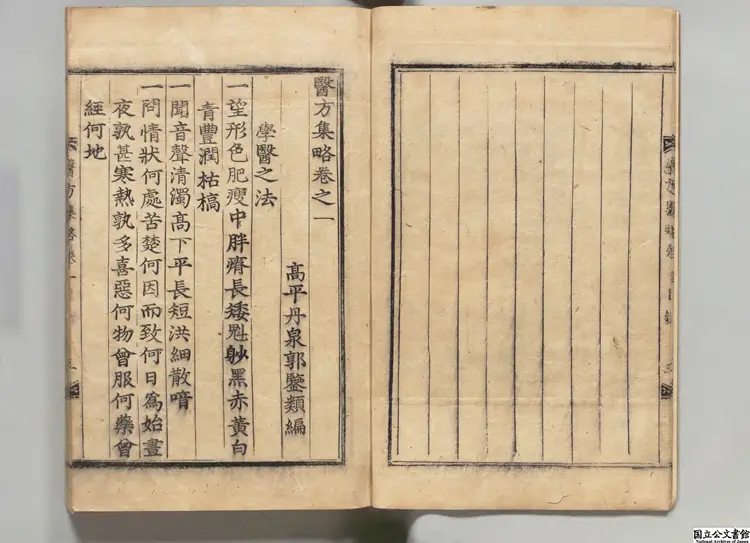 醫方集略卷之一
高平丹泉郭鑒類編
學醫之法
一望形色肥瘦中胖瘠長矮魁魦黑赤黃白
青豐潤枯槁
一聞音聲清濁高下平長短洪細散喑
一問情狀何處苦楚何因而致何日爲始晝
夜孰甚寒熱孰多喜惡何物曾服何藥曾
經何地
醫方集略卷一
国立公文書館
National Archives of Japan